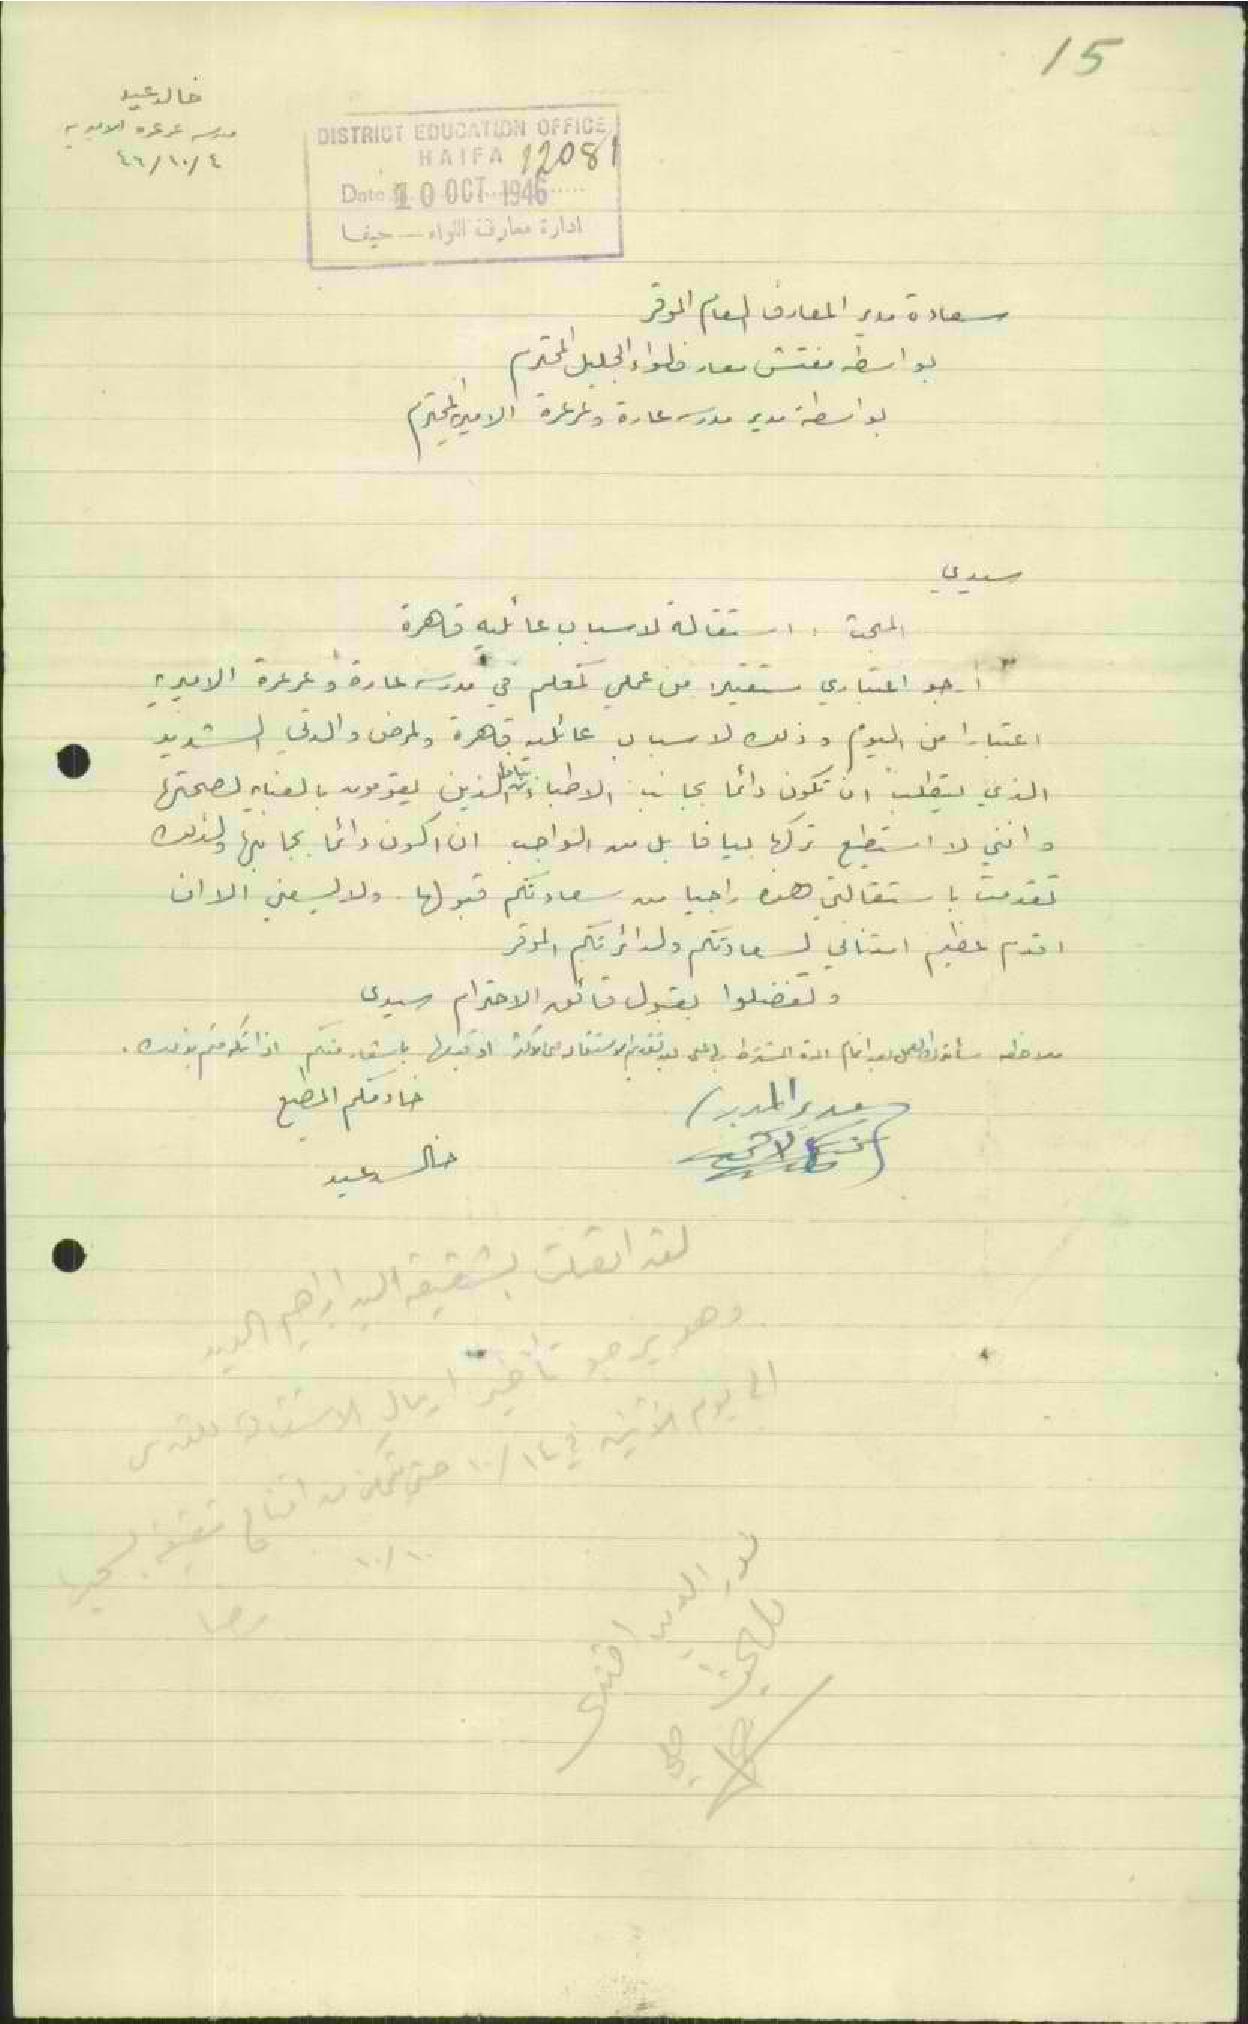 15
خالد عيد
مدرسة عرعرة الاميرية
٤٦/١٠/٤
DISTRICT EDUCATION OFFICE
HAIFA 12081
Date 10 OCT 1946
ادارة معارف اللواء - حيفا
سعادة مدير المعارف العام الموقر
بواسطة مفتش معارف لواء الجليل المحترم
بواسطة مدير مدرسة عارة وعرعرة الاميرية المحترم
سيدي
المبحث : استقالة لاسباب عائلية قاهرة
أرجو اعتباري مستقيلا من عملي كمعلم في مدرسة عارة وعرعرة الاميرية
اعتبارا من اليوم وذلك لاسباب عائلية قاهرة ولمرض والدتي الشديد
الذي يتطلب ان تكون دائما بجانب الاطباء الذين يقومون بالعناية لصحتها
وانني لا استطيع تركها بيافا بل من الواجب ان اكون دائما بجانبها ولذلك
تقدمت باستقالتي هذه راجيا من سعادتكم قبولها. ولا يسعني الا ان
اقدم عظيم امتناني لسعادتكم ولدائرتكم الموقر
وتفضلوا بقبول فائق الاحترام سيدي
ملاحظة
خادمكم المطيع
مدير المدرسة
خالد عيد
لقد اتصلت بشقيقه السيد ابراهيم العيد
وهو يرجو تأخير ارسال الاستقالة للقدس
الى يوم الاثنين في ١٠/١٤ حتى يتمكن من اقناع شقيقه بسحبها
١٠/١٠
نور الدين افندي